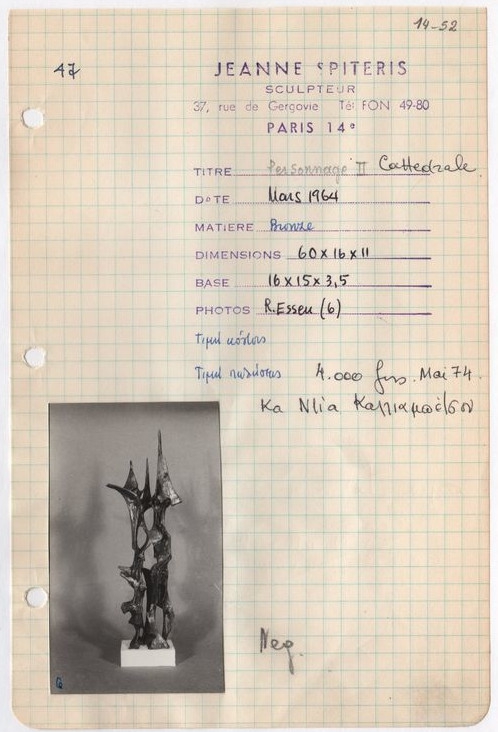 14-52
47
JEANNE SPITERIS
SCULPTEUR
37, rue de Gergovie Tél FON 49-80
PARIS 14e
TITRE Personnage II Cathedrale
DATE Mars 1964
MATIERE Bronze
DIMENSIONS 60x16x11
BASE 16x15x3,5
PHOTOS R.Essen (6)
Τιμή κόστους
Τιμή πωλήσεως 4.000 frs. Mai 74.
Κα Νία
Neg.
6